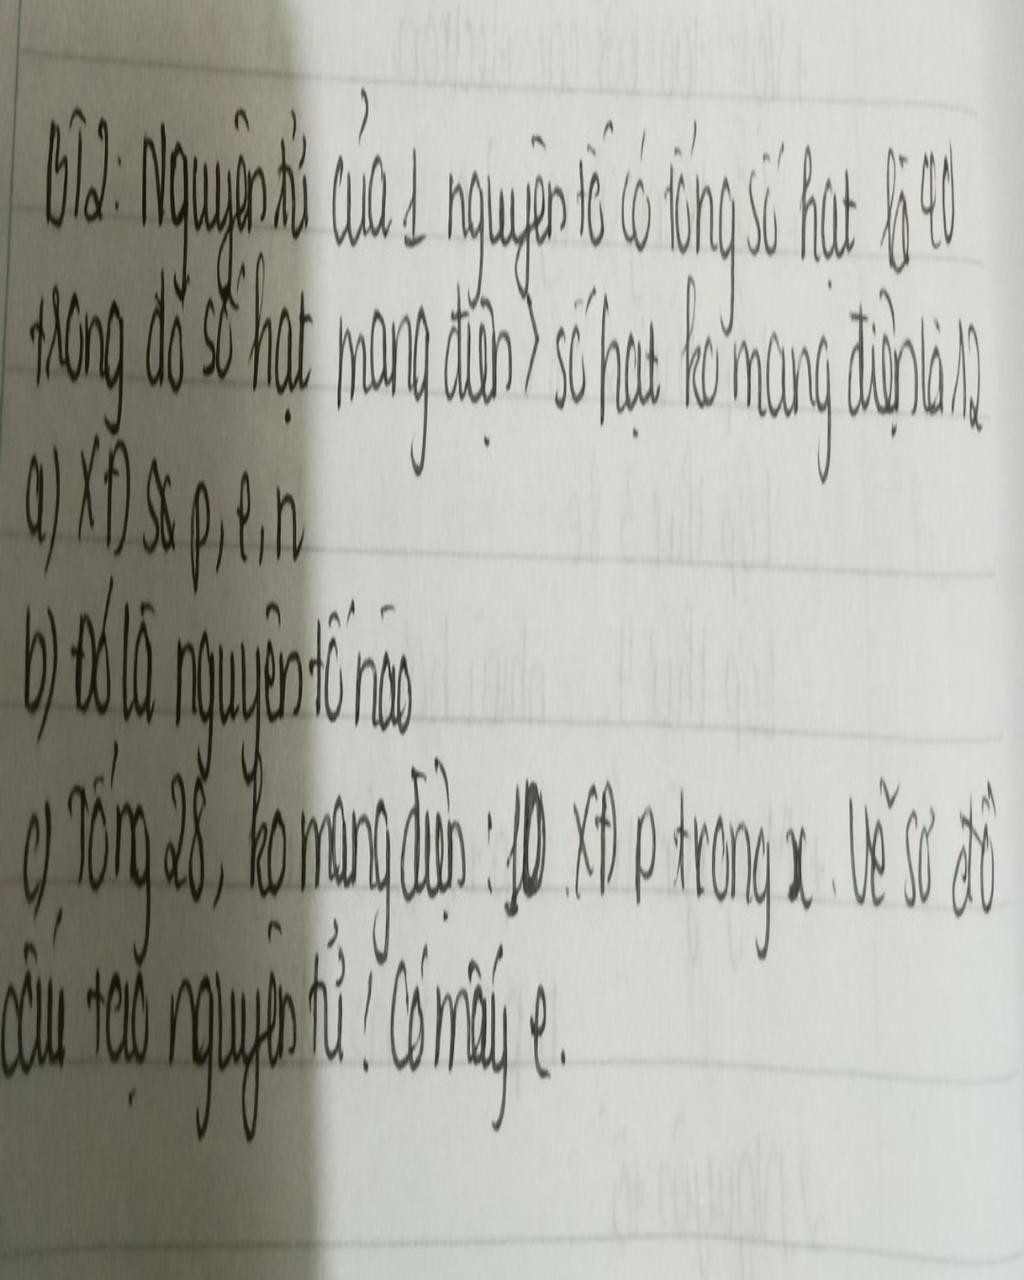 BT2: Nguyên tử của 1 nguyên tố có tổng số hạt là 40
trong đó số hạt mang điện > số hạt ko mang điện là 12
a) XĐ số p, e, n
b) Đó là nguyên tố nào
c) Tổng 28, ko mang điện : 10. XĐ p trong x. Vẽ sơ đồ
cấu tạo nguyên tử! Có mấy e.